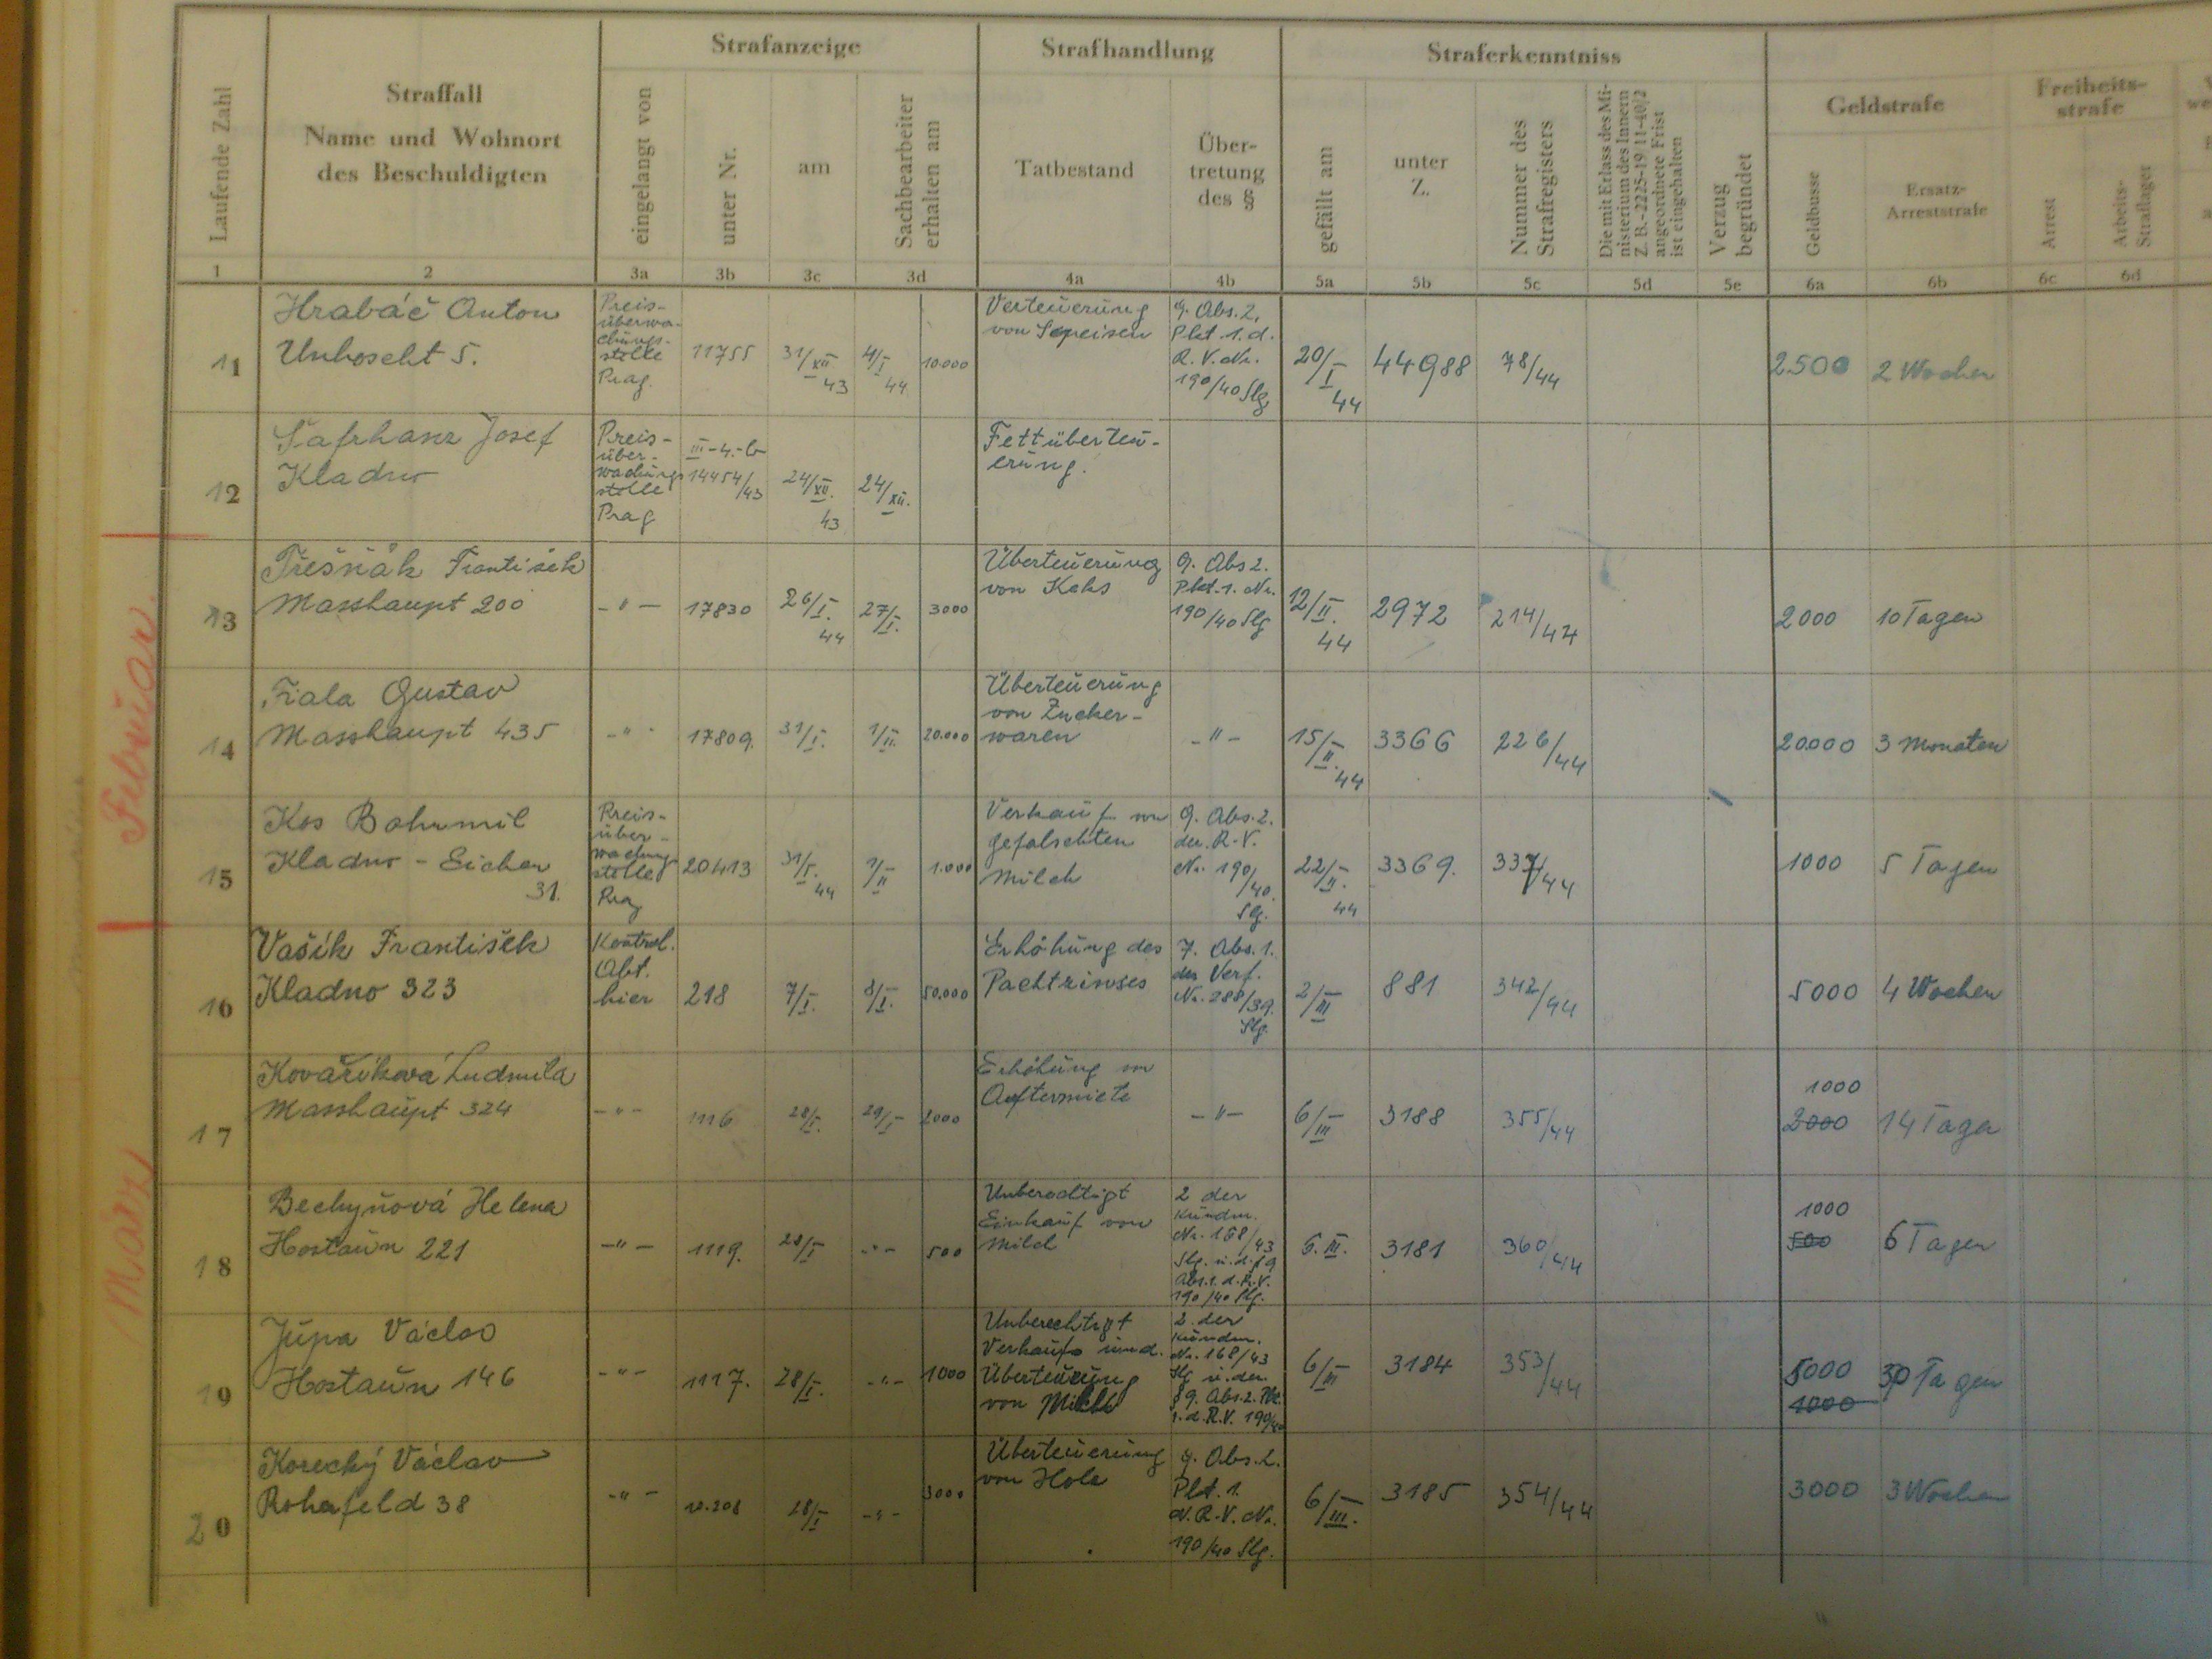 Strafanzeige
Strafhandlung
Straferkenntniss
Laufende Zahl
Straffall
Name und Wohnort
des Beschuldigten
eingelangt von
unter Nr.
am
Sachbearbeiter
erhalten am
Tatbestand
Über-
tretung
des §
gefällt am
unter
Z.
Nummer des
Strafregisters
Die mit Erlass des Mi-
nisterium des Innern
Z. B.-2225-19 11-40/2
angeordnete Frist
ist eingehalten
Verzug
begründet
Geldstrafe
Geldbusse
Ersatz-
Arreststrafe
Freiheits-
strafe
Arrest
Arbeits-
Straflager
1 2 3a 3b 3c 3d 4a 4b 5a 5b 5c 5d 5e 6a 6b 6c 6d
11
Hrabáč Anton
Unhoscht 5.
Preis-
überwa-
chungs-
stelle
Prag.
11755
31/XII
43
4/I
44
10.000
Verteuerung
von Speisen
9. Abs. 2.
Pkt. 1. d.
R. V. Nr.
190/40 Slg
20/I
44
44988
78/44
2500
2 Wochen
12
Šafrhanz Josef
Kladno
Preis-
über-
wachungs
stelle
Prag
III-4.-b
14454/43
24/XII.
43
24/XII.
Fettüberteu-
erung.
Februar.
13
Třešňák František
Masshaupt 200
-"-
17830
26/I.
44
27/I.
3000
Überteuerung
von Keks
9. Abs 2.
Pkt. 1. Nr.
190/40 Slg
12/II.
44
2972
214/44
2000
10 Tagen
14
Fiala Gustav
Masshaupt 435
-"-
17809.
31/I.
1/II.
20.000
Überteuerung
von Zucker-
waren
-"-
15/II.
44
3366
226/44
20.000
3 Monaten
15
Kos Bohumil
Kladno - Eichen
31.
Preis-
über-
wachung
stelle
Prag
20413
31/I.
44
1/II
1.000
Verkauf von
gefalschten
Milch
9. Abs. 2.
der. R. V.
Nr. 190/40.
Slg.
22/II.
44
3369.
337/44
1000
5 Tagen
März
16
Vašík František
Kladno 323
Kontrol.
Abt.
hier
218
7/I.
8/I.
50.000
Erhöhung des
Pachtzinses
7. Abs. 1.
der Verf.
Nr. 288/39.
Slg.
2/III
881
342/44
5000
4 Wochen
17
Kovaříková Ludmila
Masshaupt 324
-"-
1116
28/I.
29/I
2000
Erhöhung von
Aftermiete
-"-
6/III
3188
355/44
1000
2000
14 Tagen
18
Bechyňová Helena
Hostaun 221
-"-
1119.
28/I
-"-
500
Unberechtigt
Einkauf von
Milch
2 der
Kundm.
Nr. 168/43
Slg. u. d. § 9
Abs. 1. d. R. V.
190/40 Slg.
6. III.
3181
360/44
1000
500
6 Tagen
19
Jůpa Václav
Hostaun 146
-"-
1117.
28/I.
-"-
1000
Unberechtigt
Verkaufs und.
Überteuerung
von Milch
2. der
Kundm.
Nr. 168/43
Slg u. der.
§ 9. Abs. 2. Pkt.
1. d. R. V. 190/40
6/III
3184
353/44
5000
1000
30 Tagen
20
Korecký Václav
-"-
28/I
-"-
3000
Überteuerung
von Holz
9. Abs. 2.
Pkt. 1.
d. R. V. Nr.
190/40 Slg.
6/III.
3185
354/44
3000
3 Wochen